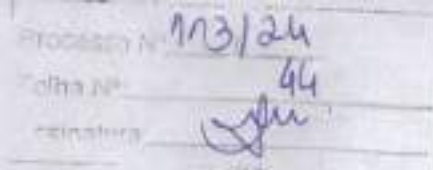 Processo Nº 113/24
Folha Nº 44
Assinatura